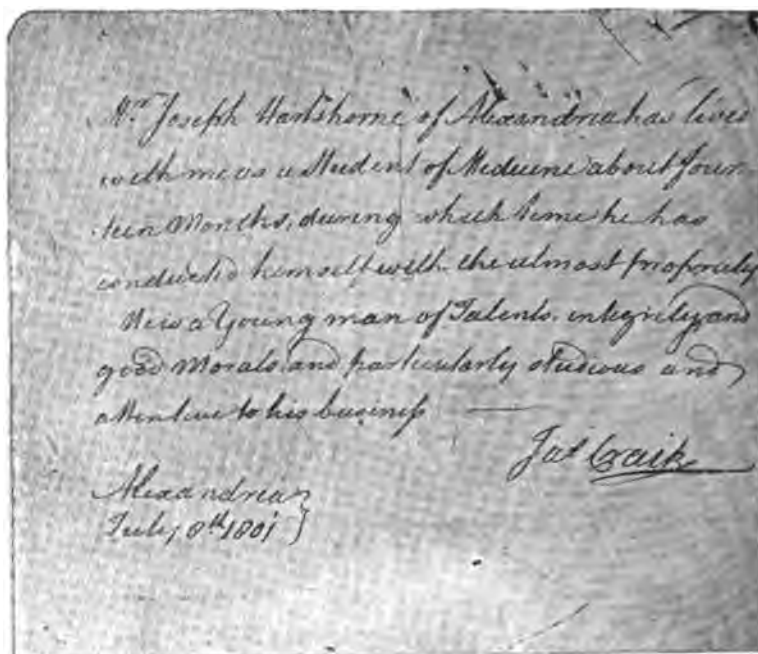 Mr. Joseph Hartshorne of Alexandria has lived
with me as a Student of Medicine about four-
teen Months, during which time he has
conducted himself with the utmost propriety
He is a Young man of Talents, integrity and
good Morals, and particularly studious and
attentive to his business —
Jas Craik
Alexandria }
July 8th 1801 }